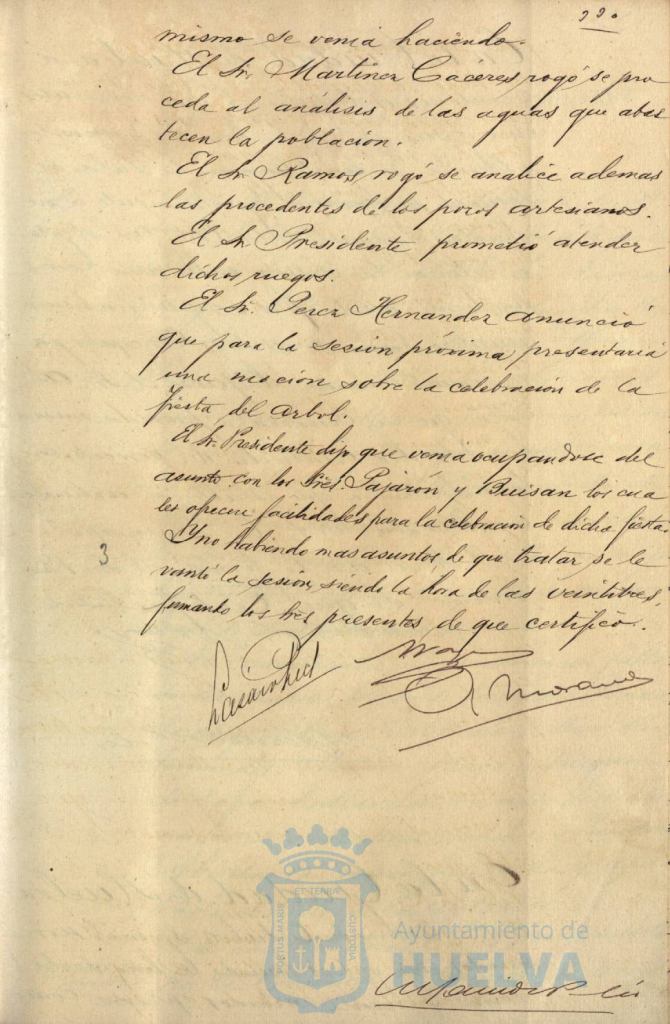 220
mismo se venia haciendo.
El Sr. Martinez Cáceres rogó se pro
ceda al análisis de las aguas que abas
tecen la población.
El Sr. Ramos, rogó se analice ademas
las procedentes de los pozos artesianos.
El Sr. Presidente prometió atender
dichos ruegos.
El Sr. Perez Hernandez anunció
que para la sesión próxima presentaria
una moción sobre la celebración de la
fiesta del arbol.
El Sr. Presidente dijo que venia ocupandose del
asunto con los Sres. Pajarón y Buisan los cua
les ofrecen facilidades para la celebración de dicha fiesta.
Y no habiendo mas asuntos de que tratar, se le
vantó la sesión, siendo la hora de las veintitres,
firmando los Sres presentes de que certifico.
3
Morano
PORTUS MARIS ET TERRAE CUSTODIA
Ayuntamiento de
HUELVA